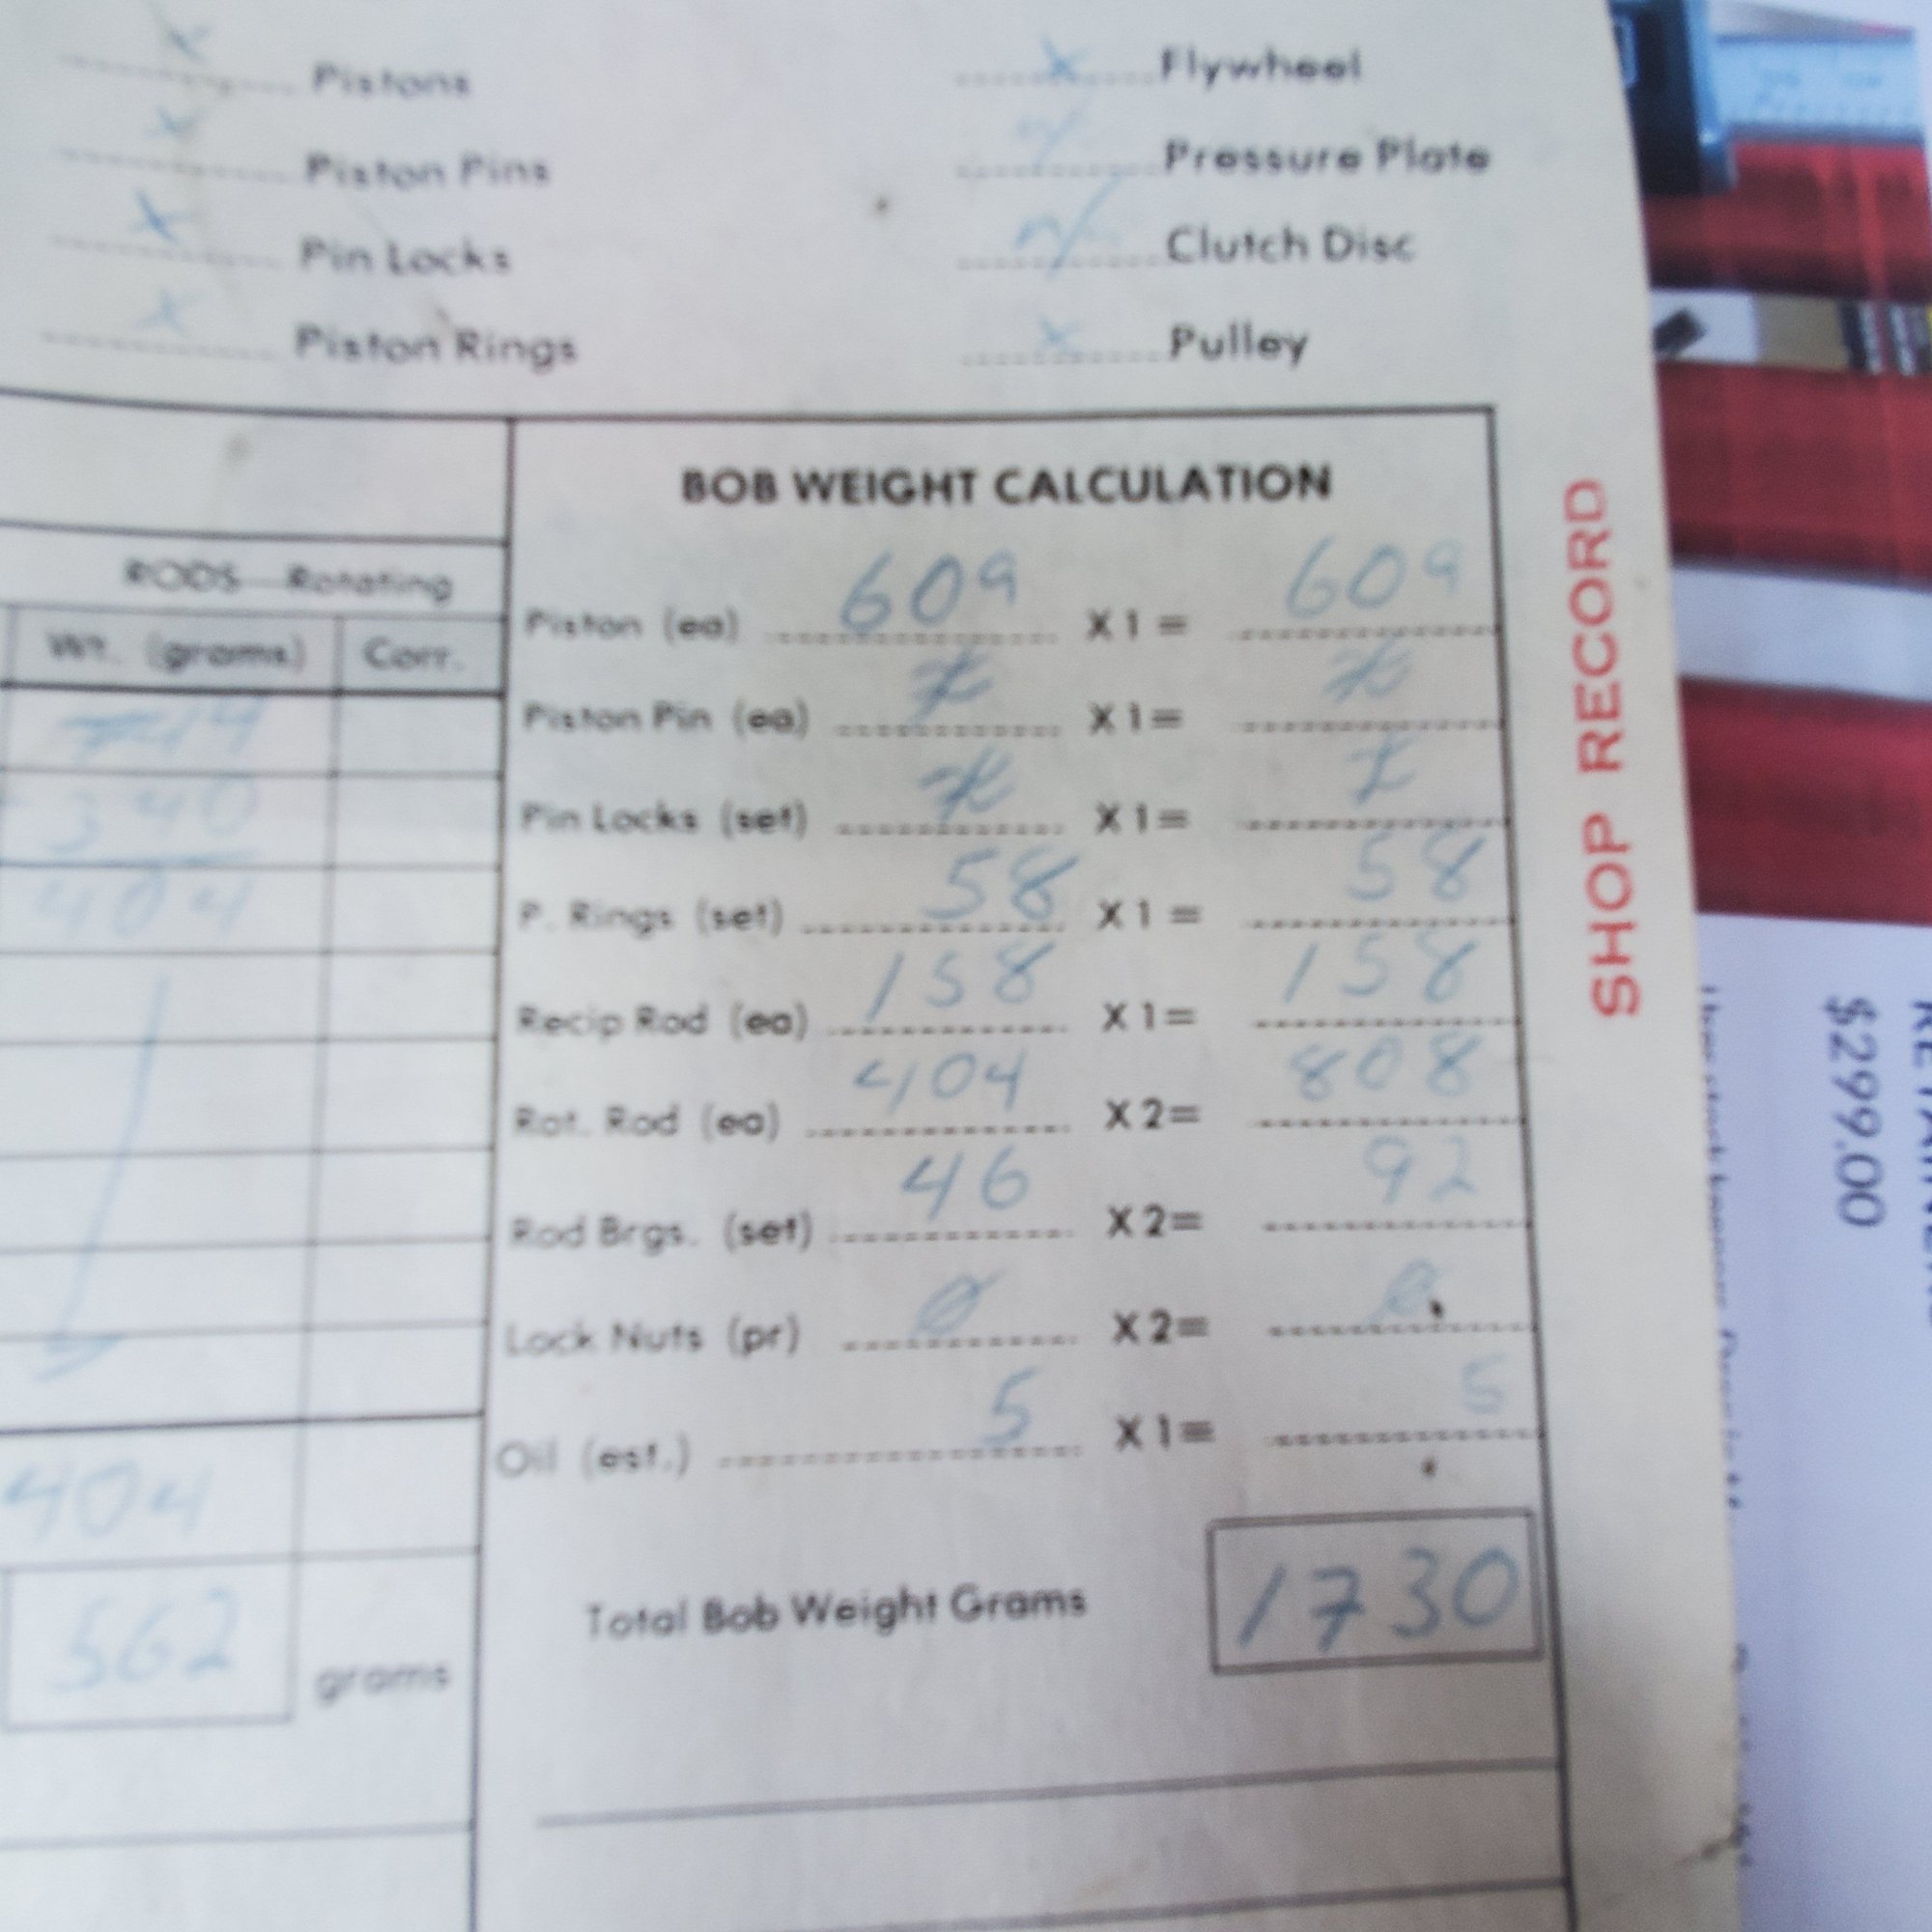 x Pistons
x Flywheel
x Piston Pins
n/ Pressure Plate
x Pin Locks
n/ Clutch Disc
x Piston Rings
x Pulley
BOB WEIGHT CALCULATION
RODS Rotating
Wt. (grams) Corr.
Piston (ea) 609 X 1 = 609
Piston Pin (ea) X 1 =
Pin Locks (set) X 1 =
P. Rings (set) 58 X 1 = 58
Recip Rod (ea) 158 X 1 = 158
Rot. Rod (ea) 404 X 2 = 808
Rod Brgs. (set) 46 X 2 = 92
Lock Nuts (pr) 0 X 2 = 0
Oil (est.) 5 X 1 = 5
340
404
404
562 grams
Total Bob Weight Grams 1730
SHOP RECORD
$299.00